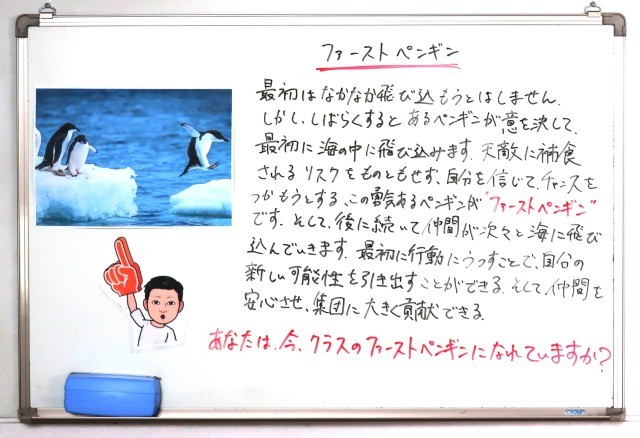 ファーストペンギン
最初はなかなか飛び込もうとはしません。
しかし、しばらくすると あるペンギンが意を決して、
最初に海の中に飛び込みます。天敵に補食
されるリスクをものともせず、自分を信じて、チャンスを
つかもうとする、この勇気あるペンギンが"ファーストペンギン"
です。そして、後に続いて仲間が次々と海に飛び
込んでいきます。最初に行動にうつすことで、自分の
新しい可能性を引き出すことができる。そして、仲間を
安心させ、集団に大きく貢献できる。
あなたは、今、クラスのファーストペンギンになれていますか?